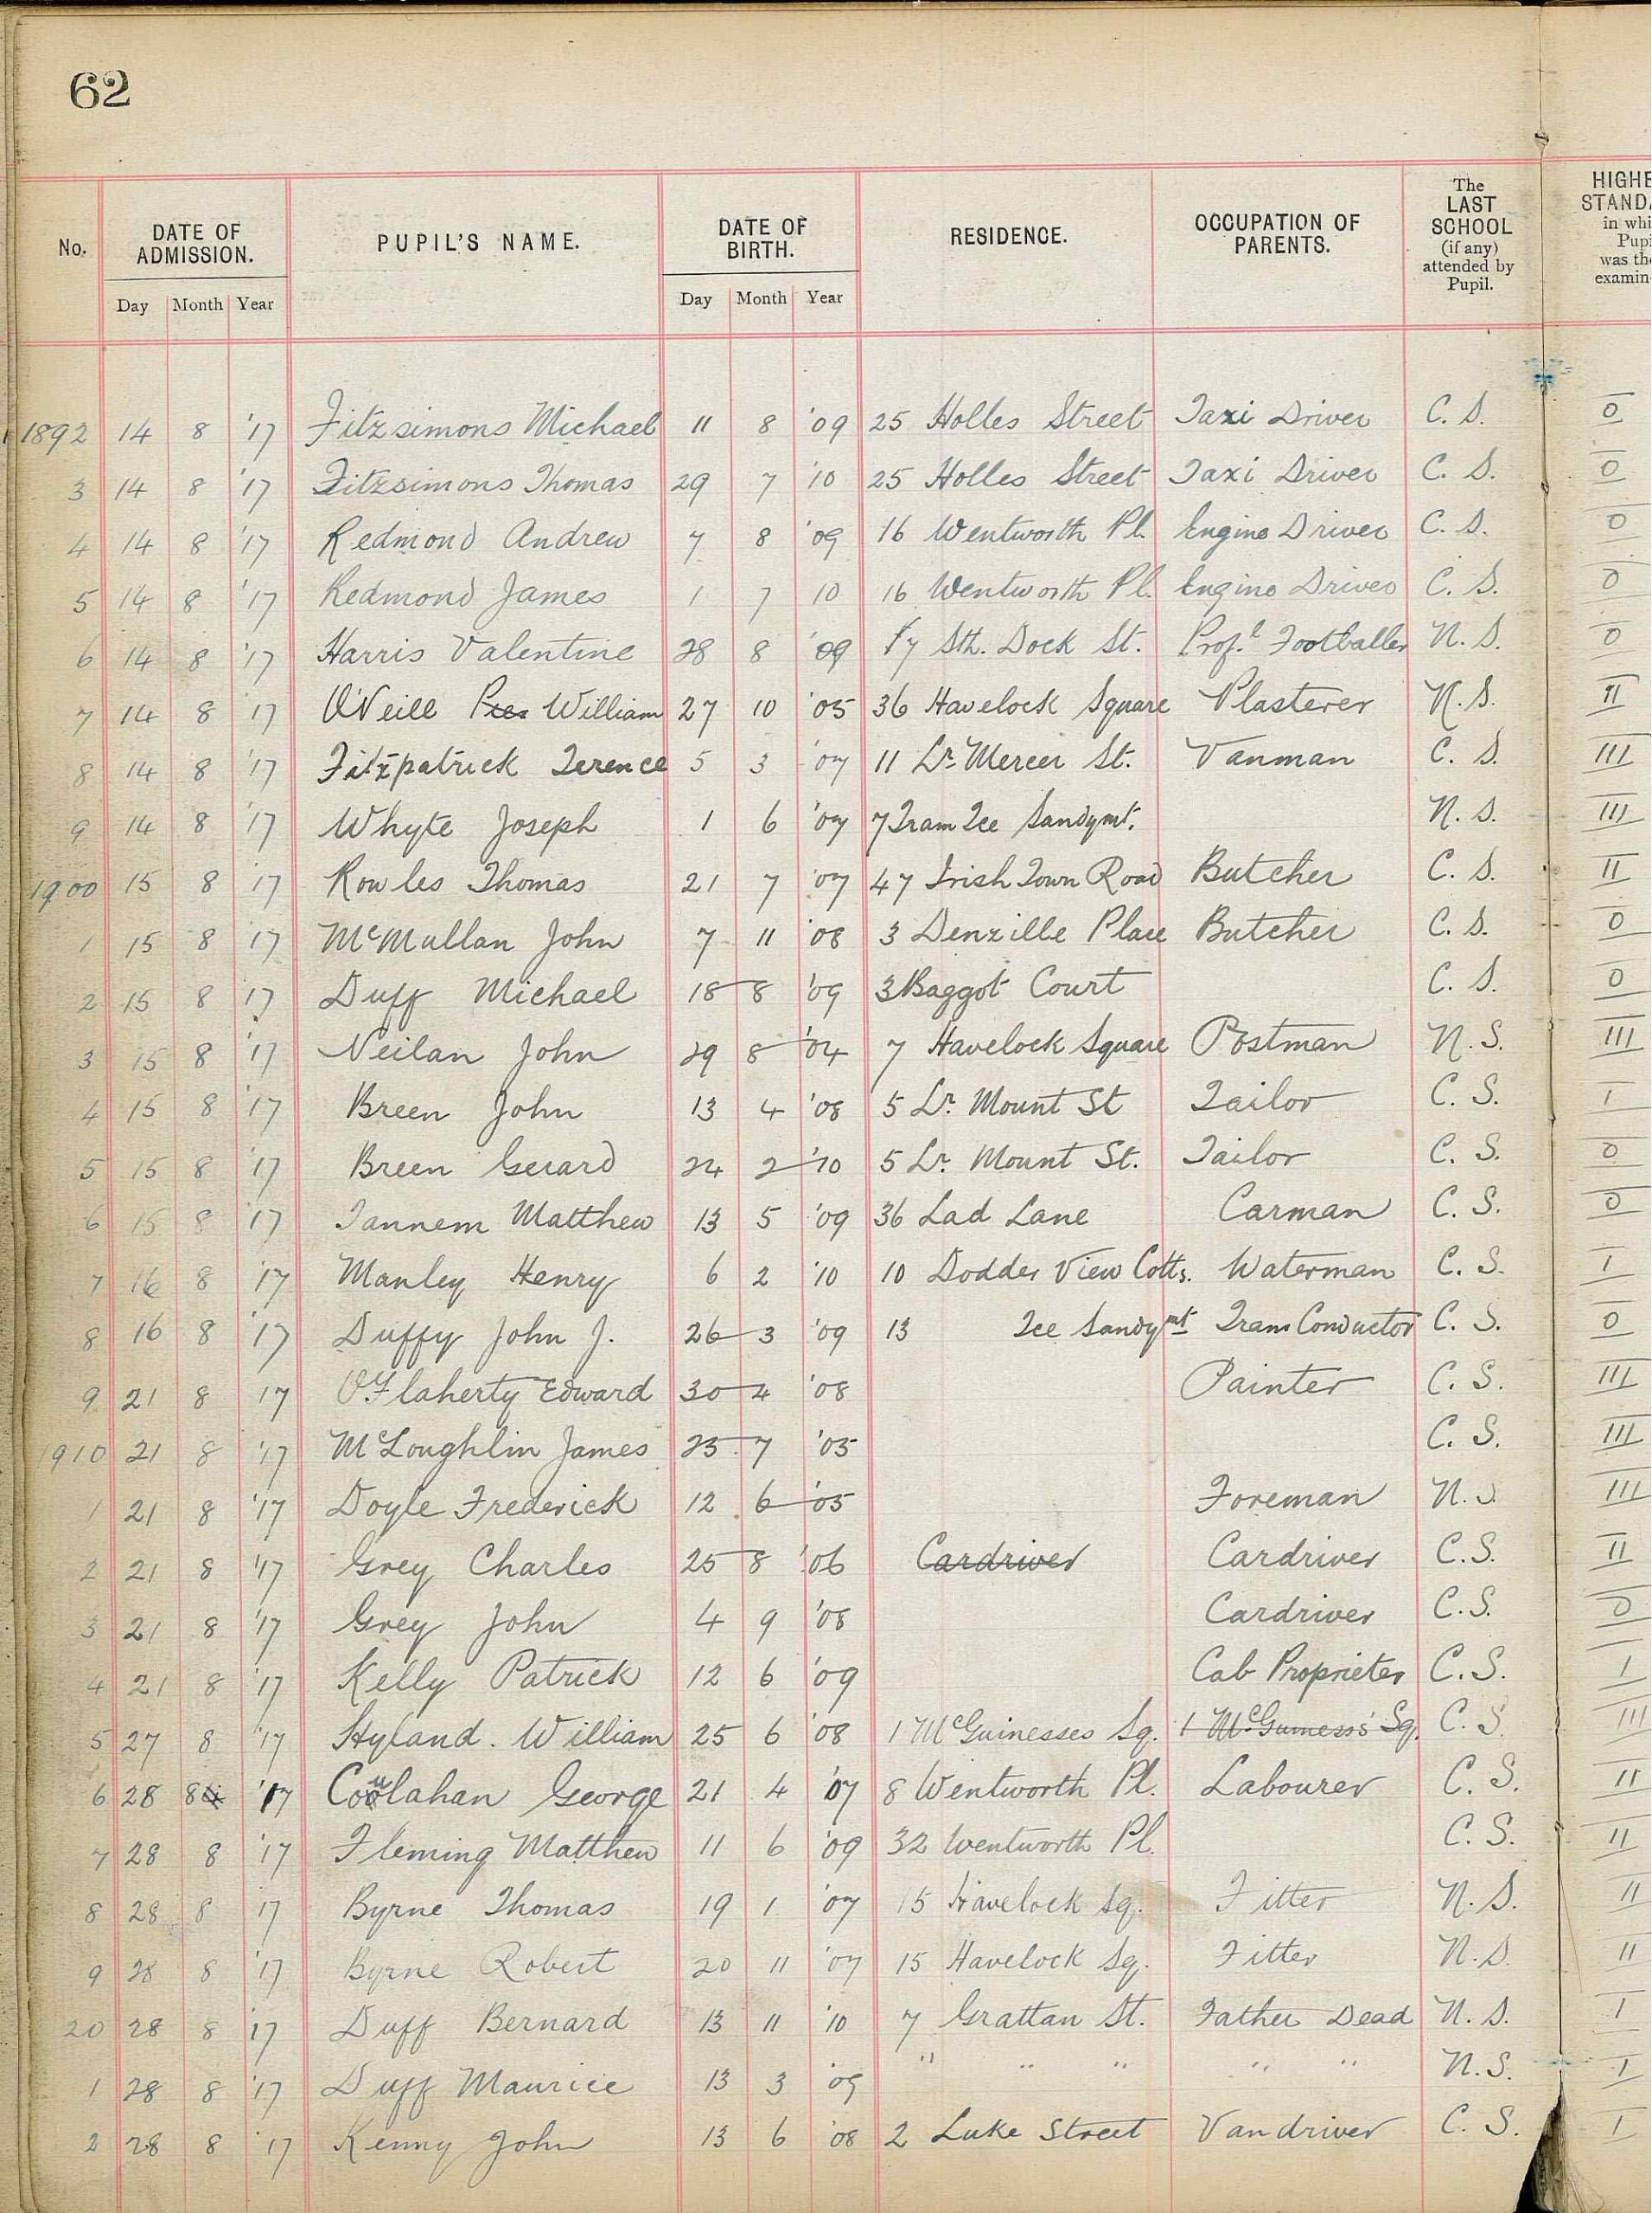 62
No. DATE OF ADMISSION. PUPIL'S NAME. DATE OF BIRTH. RESIDENCE. OCCUPATION OF PARENTS. The LAST SCHOOL (if any) attended by Pupil. HIGHE STANDA in whi Pupi was the examin
Day Month Year Day Month Year
1892 14 8 '17 Fitzsimons Michael 11 8 '09 25 Holles Street Taxi Driver C. S. 0
3 14 8 '17 Fitzsimons Thomas 29 7 '10 25 Holles Street Taxi Driver C. S. 0
4 14 8 '17 Redmond Andrew 7 8 '09 16 Wentworth Pl. Engine Driver C. S. 0
5 14 8 '17 Redmond James 1 7 10 16 Wentworth Pl. Engine Driver C. S. 0
6 14 8 '17 Harris Valentine 28 8 '09 17 Sth. Dock St. Prof.l Footballer N. S. 0
7 14 8 '17 O'Neill William 27 10 '05 36 Havelock Square Plasterer N. S. II
8 14 8 '17 Fitzpatrick Terence 5 3 '07 11 Lr. Mercer St. Vanman C. S. III
9 14 8 '17 Whyte Joseph 1 6 '07 7 Tram Tce Sandymt. N. S. III
1900 15 8 '17 Rowles Thomas 21 7 '07 47 Irish Town Road Butcher C. S. II
1 15 8 '17 McMullan John 7 11 '08 3 Denzille Place Butcher C. S. 0
2 15 8 '17 Duff Michael 18 8 '09 3 Baggot Court C. S. 0
3 15 8 '17 Neilan John 29 8 '04 7 Havelock Square Postman N. S. III
4 15 8 '17 Breen John 13 4 '08 5 Lr. Mount St Tailor C. S. I
5 15 8 '17 Breen Gerard 24 2 '10 5 Lr. Mount St. Tailor C. S. 0
6 15 8 '17 Tannem Matthew 13 5 '09 36 Lad Lane Carman C. S. 0
7 16 8 '17 Manley Henry 6 2 '10 10 Dodder View Cotts. Waterman C. S. I
8 16 8 '17 Duffy John J. 26 3 '09 13 Tce Sandymt Tram Conductor C. S. 0
9 21 8 17 O'Flaherty Edward 30 4 '08 Painter C. S. III
1910 21 8 '17 McLoughlin James 25 7 '05 C. S. III
1 21 8 '17 Doyle Frederick 12 6 '05 Foreman N. S. III
2 21 8 '17 Grey Charles 25 8 '06 Cardriver Cardriver C.S. II
3 21 8 '17 Grey John 4 9 '08 Cardriver C.S. 0
4 21 8 '17 Kelly Patrick 12 6 '09 Cab Proprieter C.S. I
5 27 8 '17 Hyland. William 25 6 '08 1 McGuinesses Sq. 1 McGuiness's Sq. C. S. III
6 28 8 '17 Coulahan George 21 4 '07 8 Wentworth Pl. Labourer C. S. II
7 28 8 '17 Fleming Matthew 11 6 '09 32 Wentworth Pl. C. S. II
8 28 8 17 Byrne Thomas 19 1 '07 15 Havelock Sq. Fitter N. S. II
9 28 8 '17 Byrne Robert 20 11 '07 15 Havelock Sq. Fitter N. S. II
20 28 8 '17 Duff Bernard 13 11 '10 7 Grattan St. Father Dead N. S. I
1 28 8 '17 Duff Maurice 13 3 '09 " " " " " N. S. I
2 28 8 '17 Kenny John 13 6 '08 2 Luke Street Vandriver C. S. I